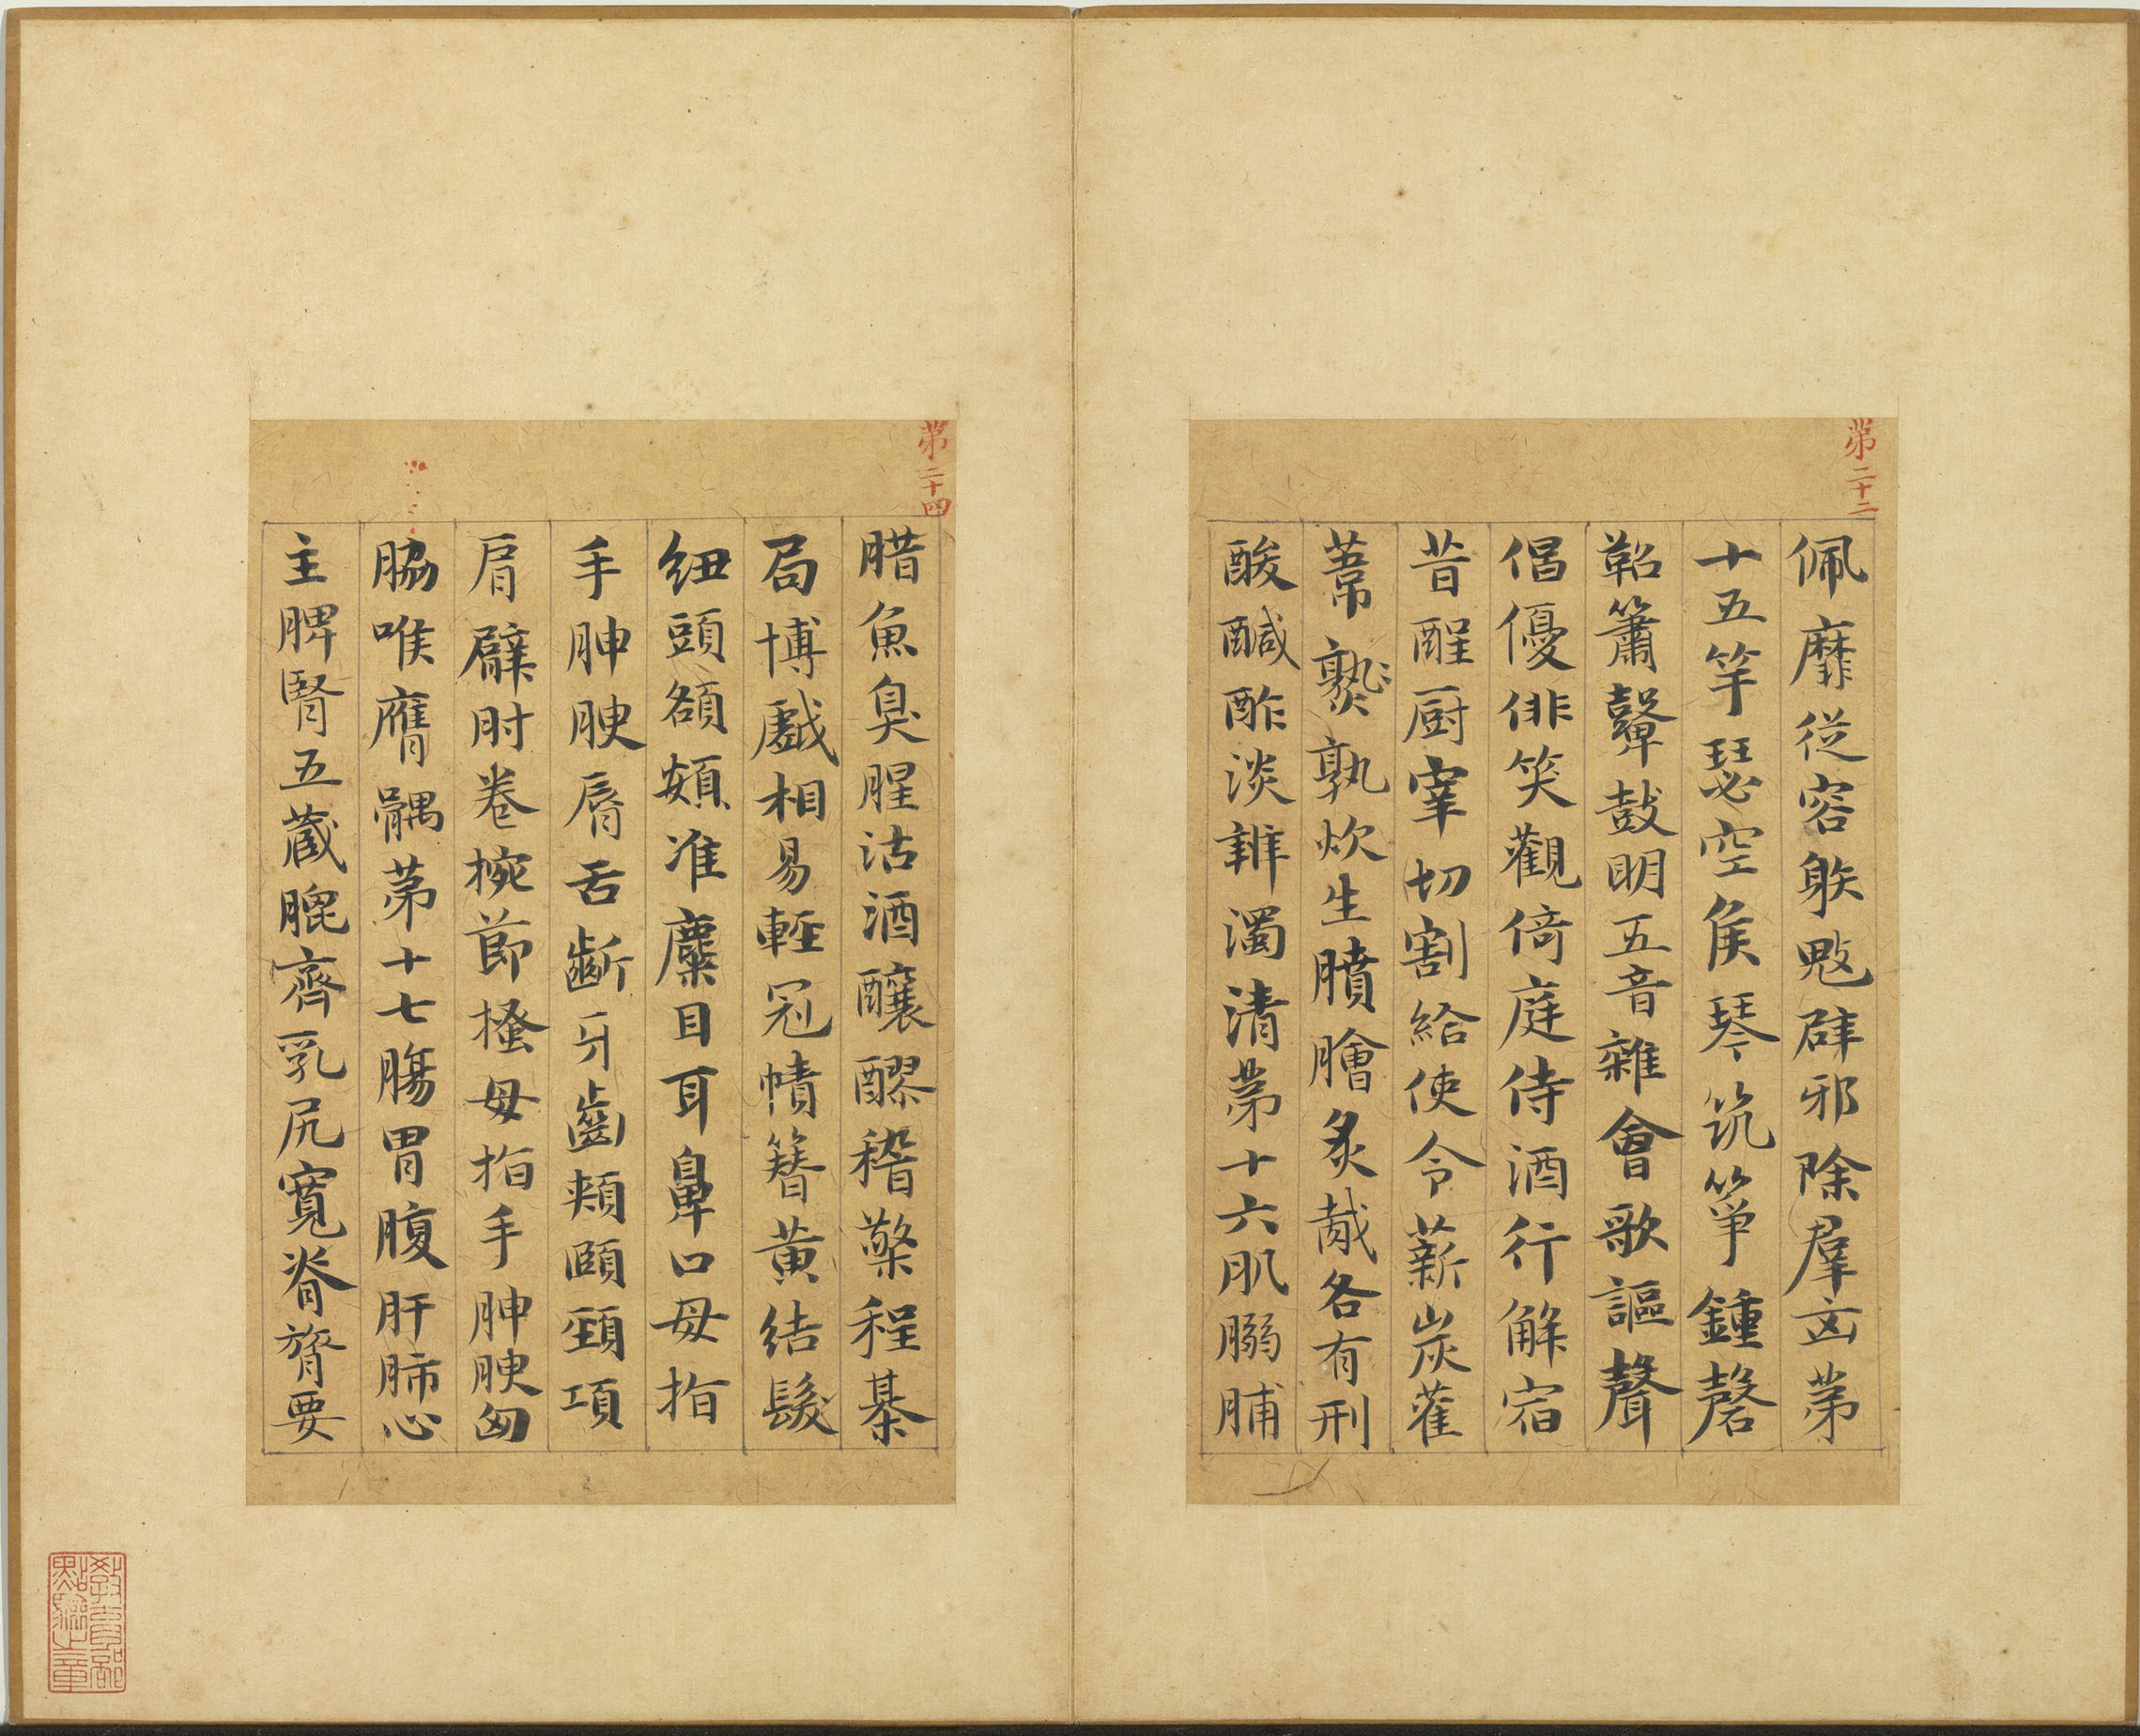 苐二十二
佩靡從容躲鬾辟邪除羣凶苐
十五竽瑟空侯琴筑箏鍾磬
鞀簫鼙鼓明五音雜會歌謳聲
倡優俳笑觀倚庭侍酒行觧宿
昔酲厨宰切割給使令薪炭雚
葦孰炊生膹膾炙胾各有刑
酸醎酢淡辨濁清苐十六肌䐞脯
苐二十四
腊魚臭腥沽酒釀醪稽檠程棊
局博戲相易輕冠幘簪黃結髮
紐頭頟頞准麋目耳鼻口母指
手胂腴脣舌齗牙齒頰頤頸項
肩臂肘卷捥節搔母指手胂腴匈
脇喉膺髃苐十七膓胃腹肝肺心
主脾腎五藏膍齊乳尻寬脊膂要
教育部
點驗之章